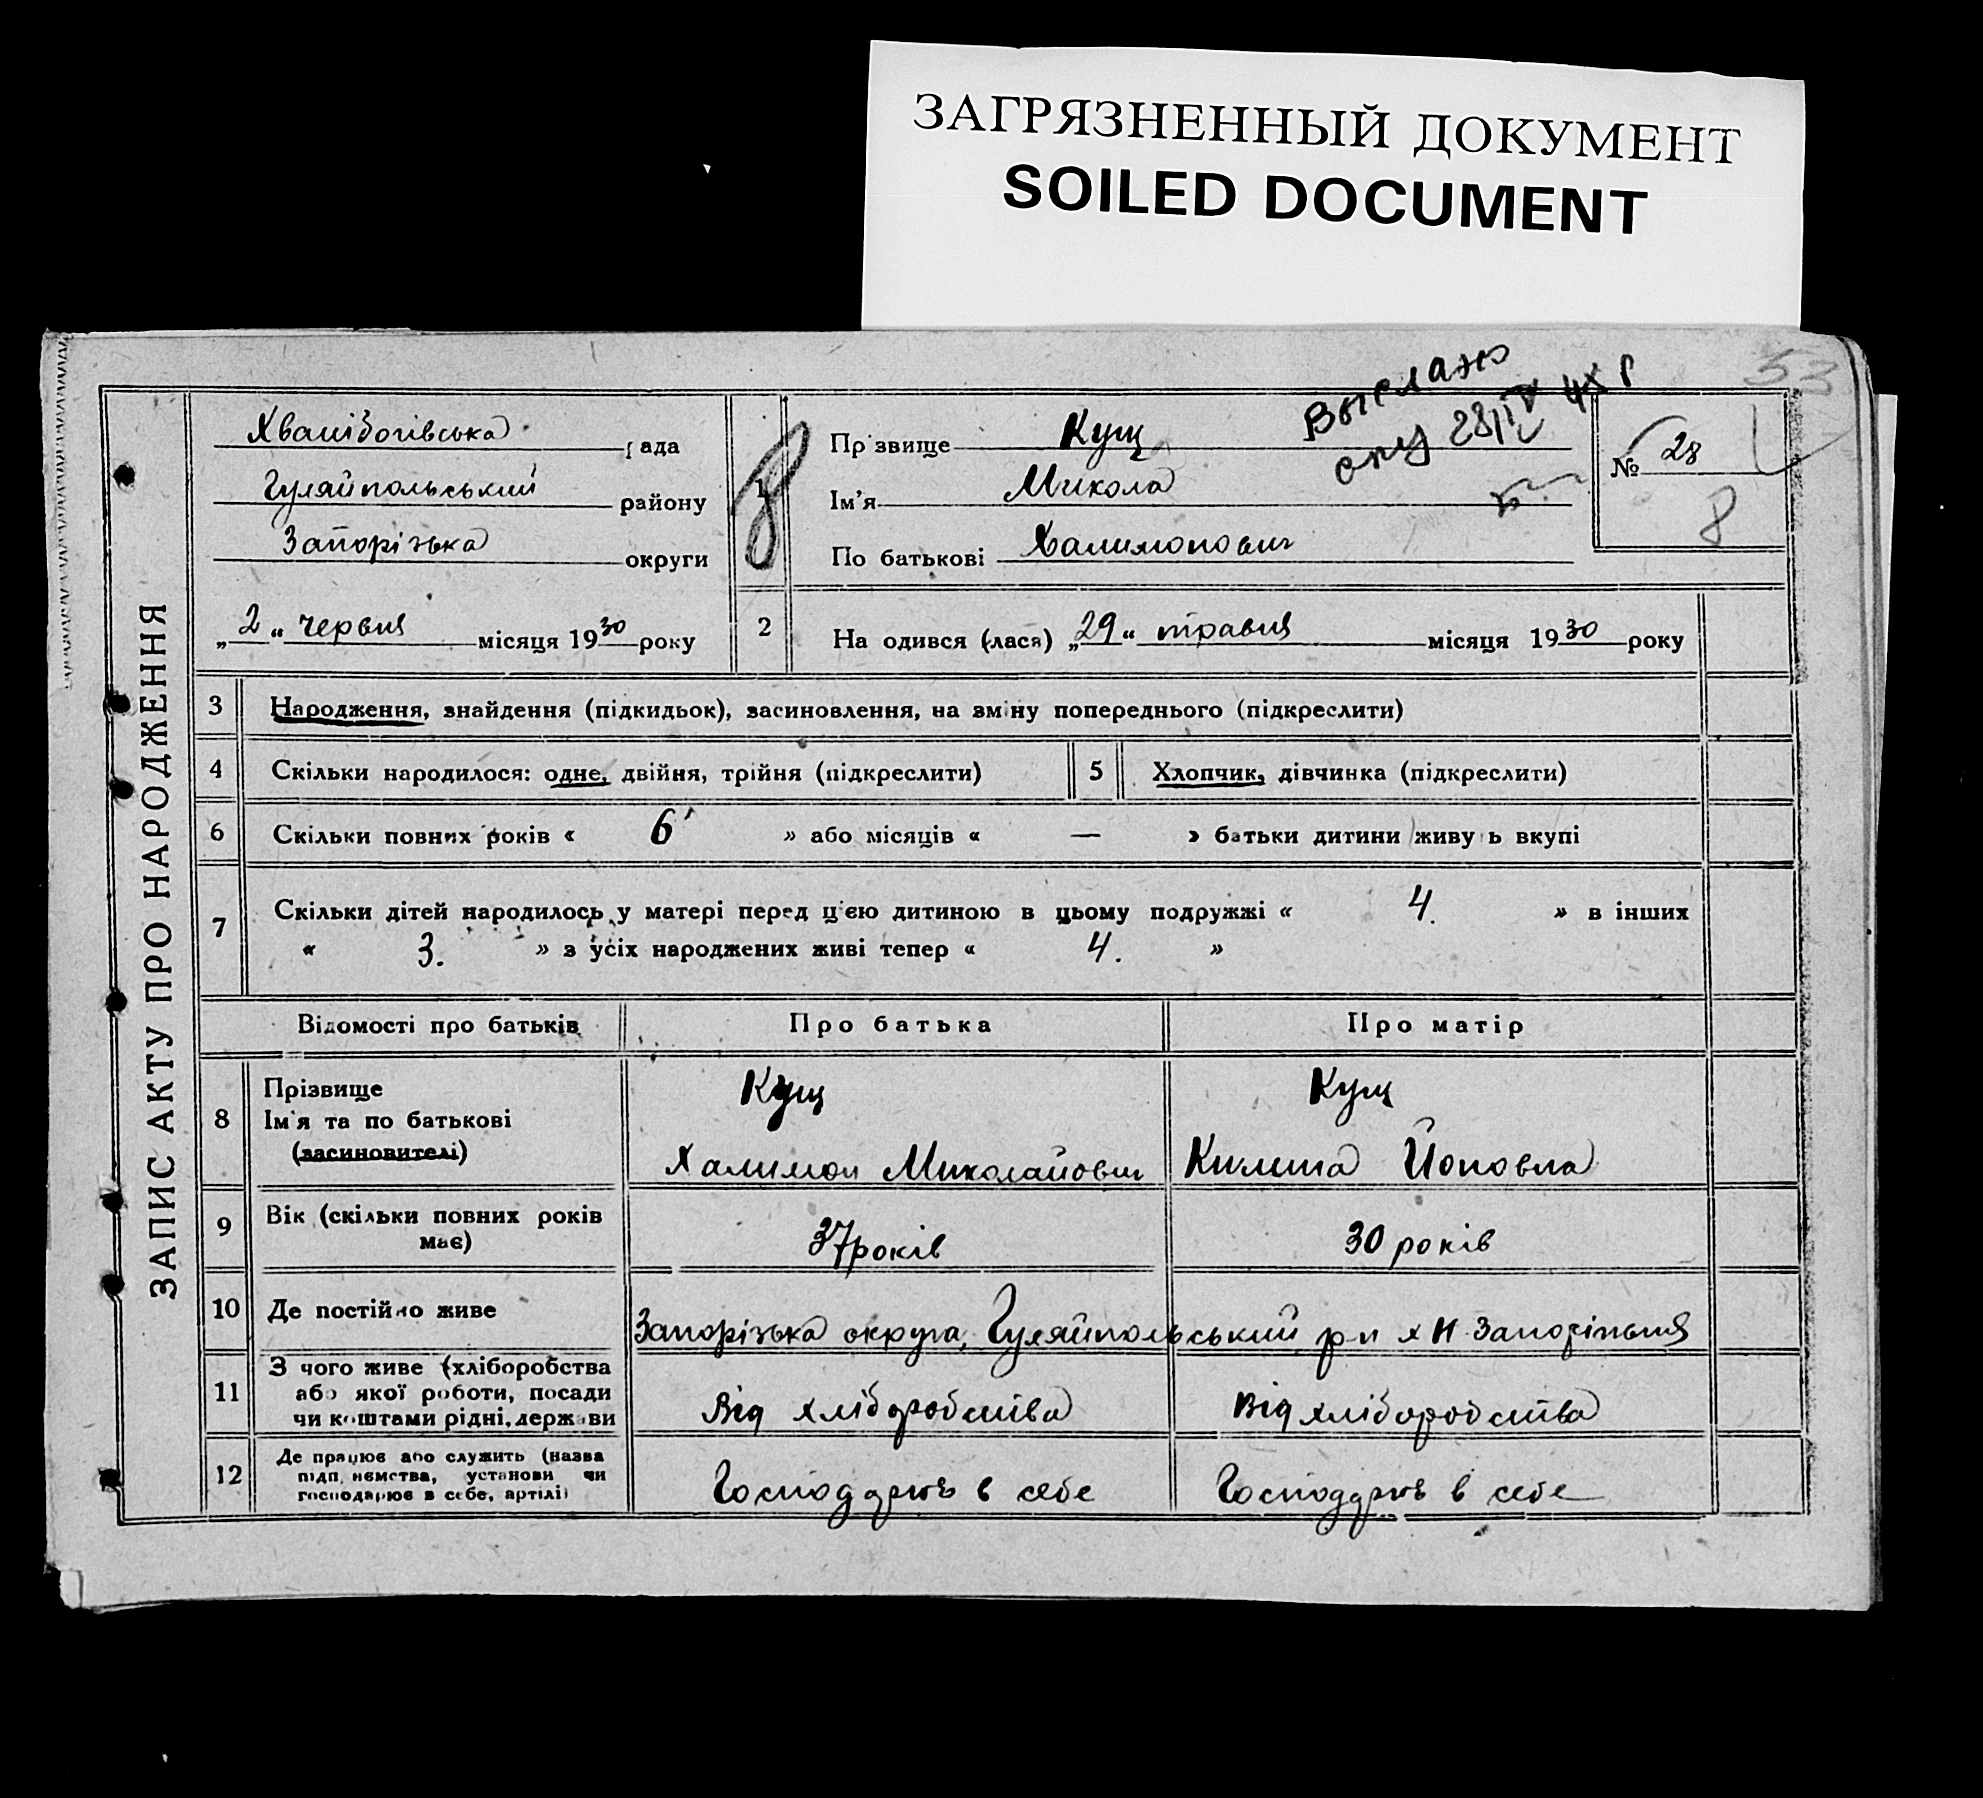 ЗАГРЯЗНЕННЫЙ ДОКУМЕНТ
SOILED DOCUMENT
53
ЗАПИС АКТУ ПРО НАРОДЖЕННЯ
рада
Гуляйпольський району
Запорізька округи
„2“ червня місяця 1930 року
1
8
Прізвище Кущ
Ім'я Микола
По батькові Халимонович
Выслано
28/IV
№ 28
8
2
На одився (лася) „29“ травня місяця 1930 року
3 Народження, знайдення (підкидьок), засиновлення, на зміну попереднього (підкреслити)
4 Скільки народилося: одне, двійня, трійня (підкреслити) 5 Хлопчик, дівчинка (підкреслити)
6 Скільки повних років « 6 » або місяців « — » батьки дитини живу ь вкупі
7 Скільки дітей народилось у матері перед цією дитиною в цьому подружжі « 4. » в інших
« 3. » з усіх народжених живі тепер « 4. »
Відомості про батьків Про батька Про матір
8 Прізвище Кущ Кущ
Ім'я та по батькові
(засиновителі) Халимон Миколайович Килина Йоновна
9 Вік (скільки повних років
має) 37 років 30 років
10 Де постійно живе Запорізька округа, Гуляйпольський р-н х Н-Запоріжья
11 З чого живе (хліборобства
або якої роботи, посади
чи коштами рідні, держави Від хліборобства Від хліборобства
12 Де працює або служить (назва
підп, иємства, установи чи
господарює в себе, артілі) Господарює в себе Господарює в себе